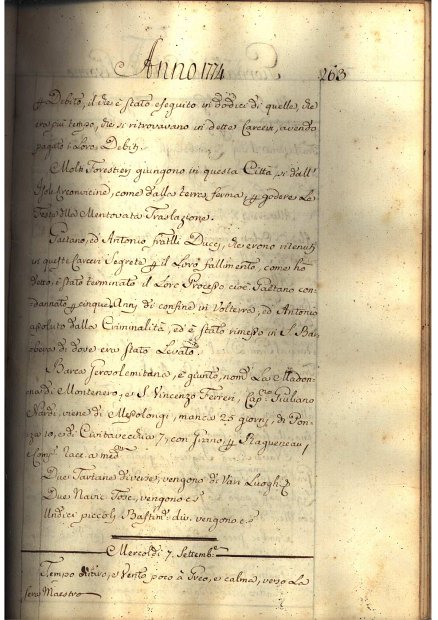 Anno 1774
263
Debito, il che è stato eseguito in dodici di quelle, che
tempo, che si ritrovavano in dette Carceri, avendo
pagato i Loro Debiti.
Molti Forestieri giungono in questa Città, sì dall'
Isole circonvicine, come dalla terra ferma, godere La
Festa della Mentovata Traslazione.
Gaetano, ed Antonio fratelli Ducci, che erono ritenuti
in queste Carceri Segrete il Loro fallimento, come ho
detto, è stato terminato il Loro Processo cioè Gaetano con-
dannato cinque Anni di confine in Volterra, ed Antonio
assoluto dalla Criminalità, ed è stato rimesso in S. Bar-
bera di dove era stato Levato.
Barca Gerosolemitana, è giunta, nomᵃ La Madon-
na di Montenero, e S. Vincenzo Ferreri, Capⁿᵒ Giuliano
Nardi, viene di Messolongi, manca 25 giorni, di Pon-
za 10, e di Civitavecchia 7, con Grano, Ragueneau,
e Compⁱ
Due Tartane diverse, vengono di Vari Luoghi
Due Navic. Tosc. vengono
Undici piccoli Bastimᵗⁱ div. vengono
Mercoldì 7. Settembᵉ
Tempo e Vento poco à Greco, e calma, verso La
sera Maestro